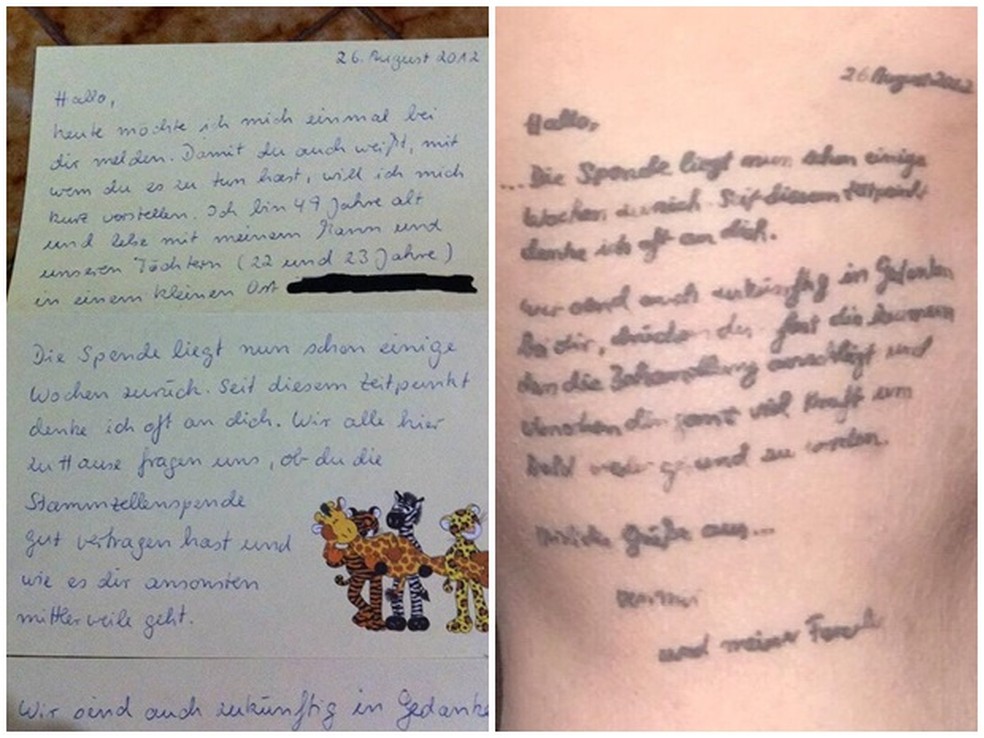 26. August 2012
Hallo,
heute möchte ich mich einmal bei
dir melden. Damit du auch weißt, mit
wem du es zu tun hast, will ich mich
kurz vorstellen. Ich bin 49 Jahre alt
und lebe mit meinem Mann und
unseren Töchtern (22 und 23 Jahre)
in einem kleinen Ort
Die Spende liegt nun schon einige
Wochen zurück. Seit diesem Zeitpunkt
denke ich oft an dich. Wir alle hier
zu Hause fragen uns, ob du die
Stammzellenspende
gut vertragen hast und
wie es dir ansonsten
mittlerweile geht.
Wir sind auch zukünftig in Gedanke
26 August 2012
Hallo,
... Die Spende liegt nun schon einige
Wochen zurück. Seit diesem Zeitpunkt
denke ich oft an dich.
wir sind auch zukünftig in Gedanken
bei dir, drücken dir fest die
das die Behandlung anschlägt und
wünschen dir ganz viel Kraft um
bald wieder gesund zu werden.
Grüße aus...
und meiner